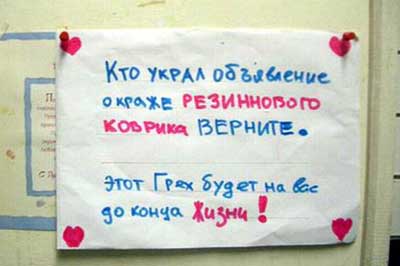 Кто украл объявление
о краже РЕЗИННОВОГО
КОВРИКА ВЕРНИТЕ.
этот Грех будет на вас
до конца Жизни!